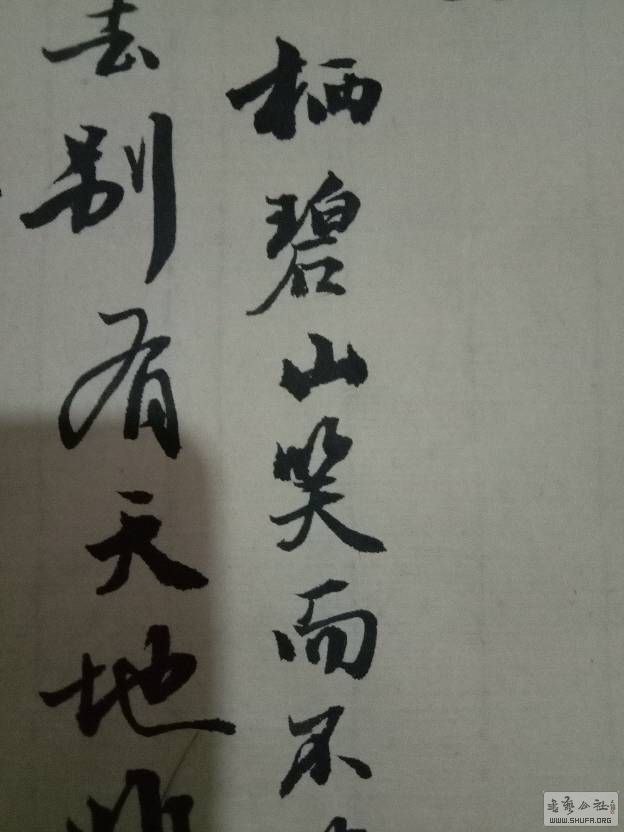 栖碧山笑而不
去别有天地非
WWW.SHUFA.ORG